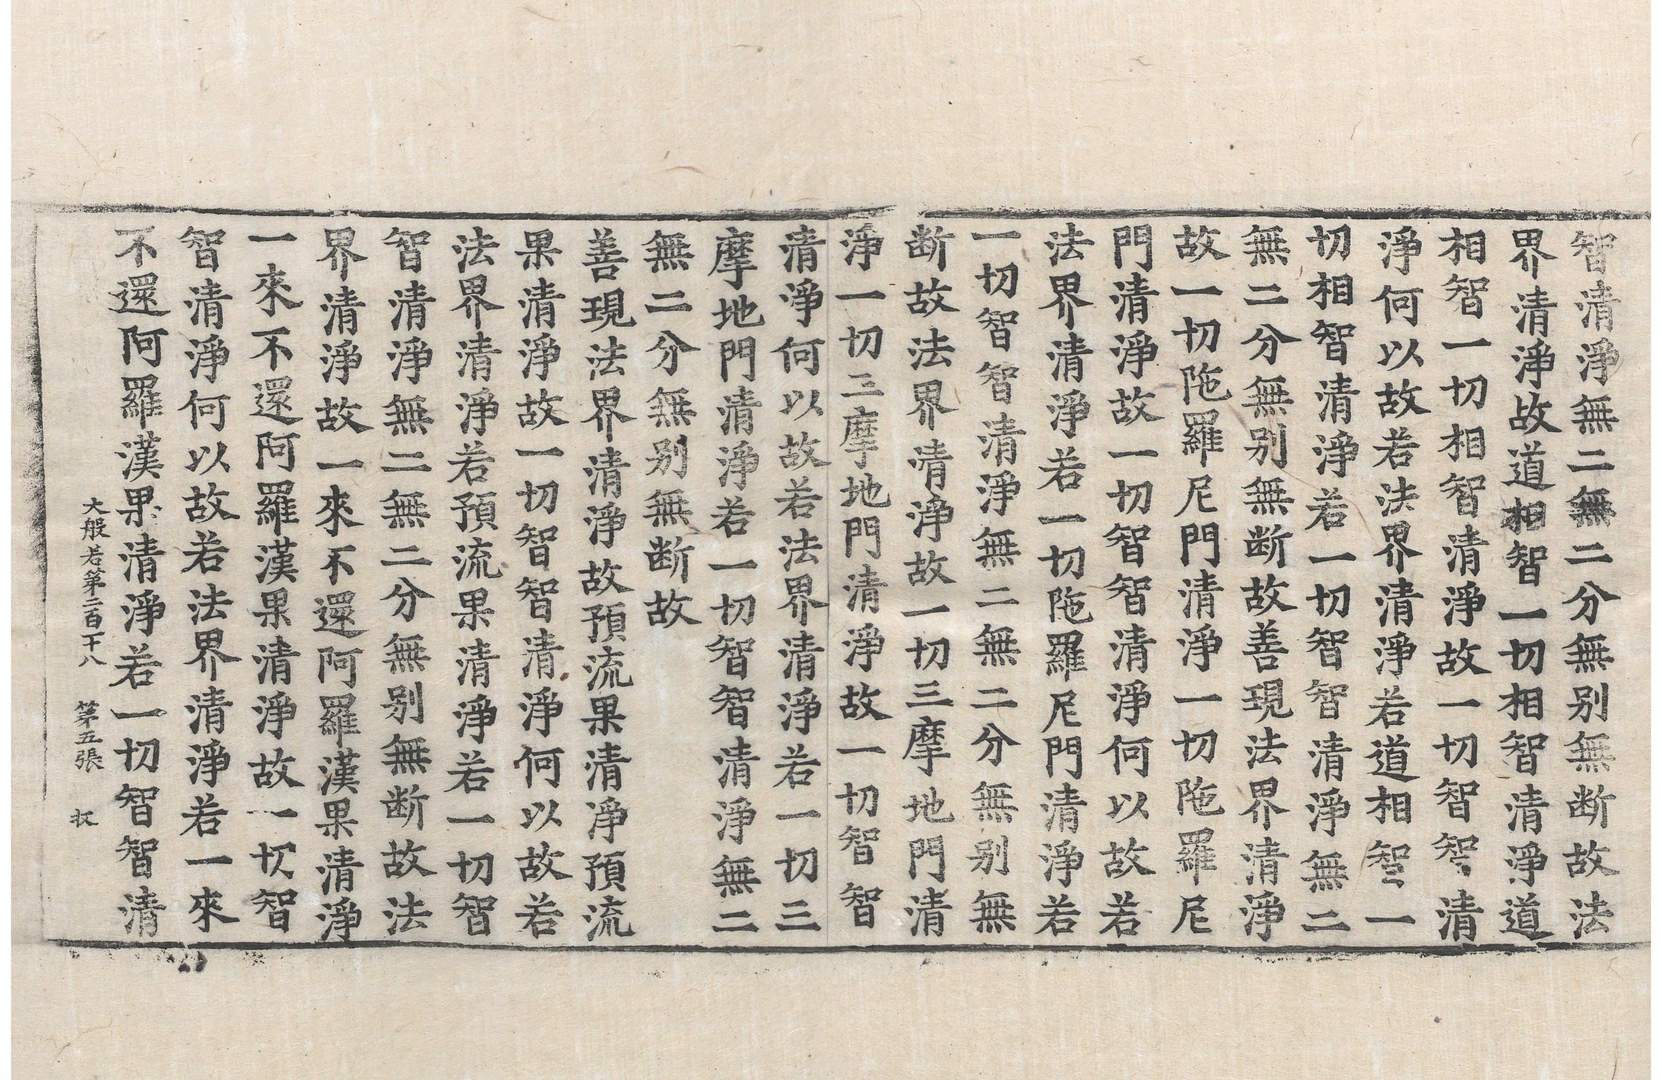 智清淨無二無二分無別無断故法
界清淨故道相智一切相智清淨道
相智一切相智清淨故一切智智清
淨何以故若法界清淨若道相智一
切相智清淨若一切智智清淨無二
無二分無別無断故善現法界清淨
故一切陁羅尼門清淨一切陁羅尼
門清淨故一切智智清淨何以故若
法界清淨若一切陁羅尼門清淨若
一切智智清淨無二無二分無別無
断故法界清淨故一切三摩地門清
淨一切三摩地門清淨故一切智智
清淨何以故若法界清淨若一切三
摩地門清淨若一切智智清淨無二
無二分無別無断故
善現法界清淨故預流果清淨預流
果清淨故一切智智清淨何以故若
法界清淨若預流果清淨若一切智
智清淨無二無二分無別無断故法
界清淨故一來不還阿羅漢果清淨
一來不還阿羅漢果清淨故一切智
智清淨何以故若法界清淨若一來
不還阿羅漢果清淨若一切智智清
大般若第二百十八 第五張 收